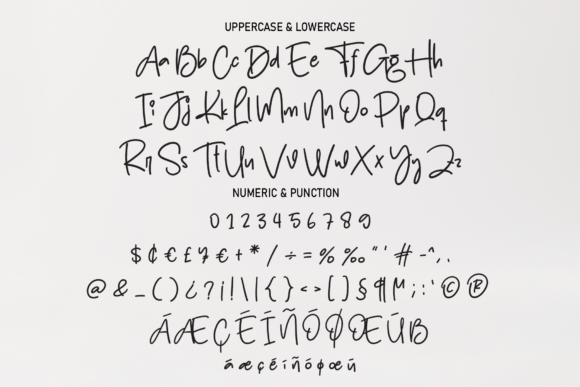 UPPERCASE & LOWERCASE
Aa Bb Cc Dd Ee Ff Gg Hh
Ii Jj Kk Ll Mm Nn Oo Pp Qq
Rr Ss Tt Uu Vv Ww Xx Yy Zz
NUMERIC & PUNCTION
0 1 2 3 4 5 6 7 8 9
$ ¢ € £ ¥ € + * / ÷ = % ‰ " ' # - ^ , .
@ & _ ( ) ¿ ? ¡ ! \ | { } < > [ ] § ¶ µ ; : ' © ®
Á Æ Ç É Í Ñ Ó Ø Œ Ú ß
á æ ç é í ñ ó ø œ ú